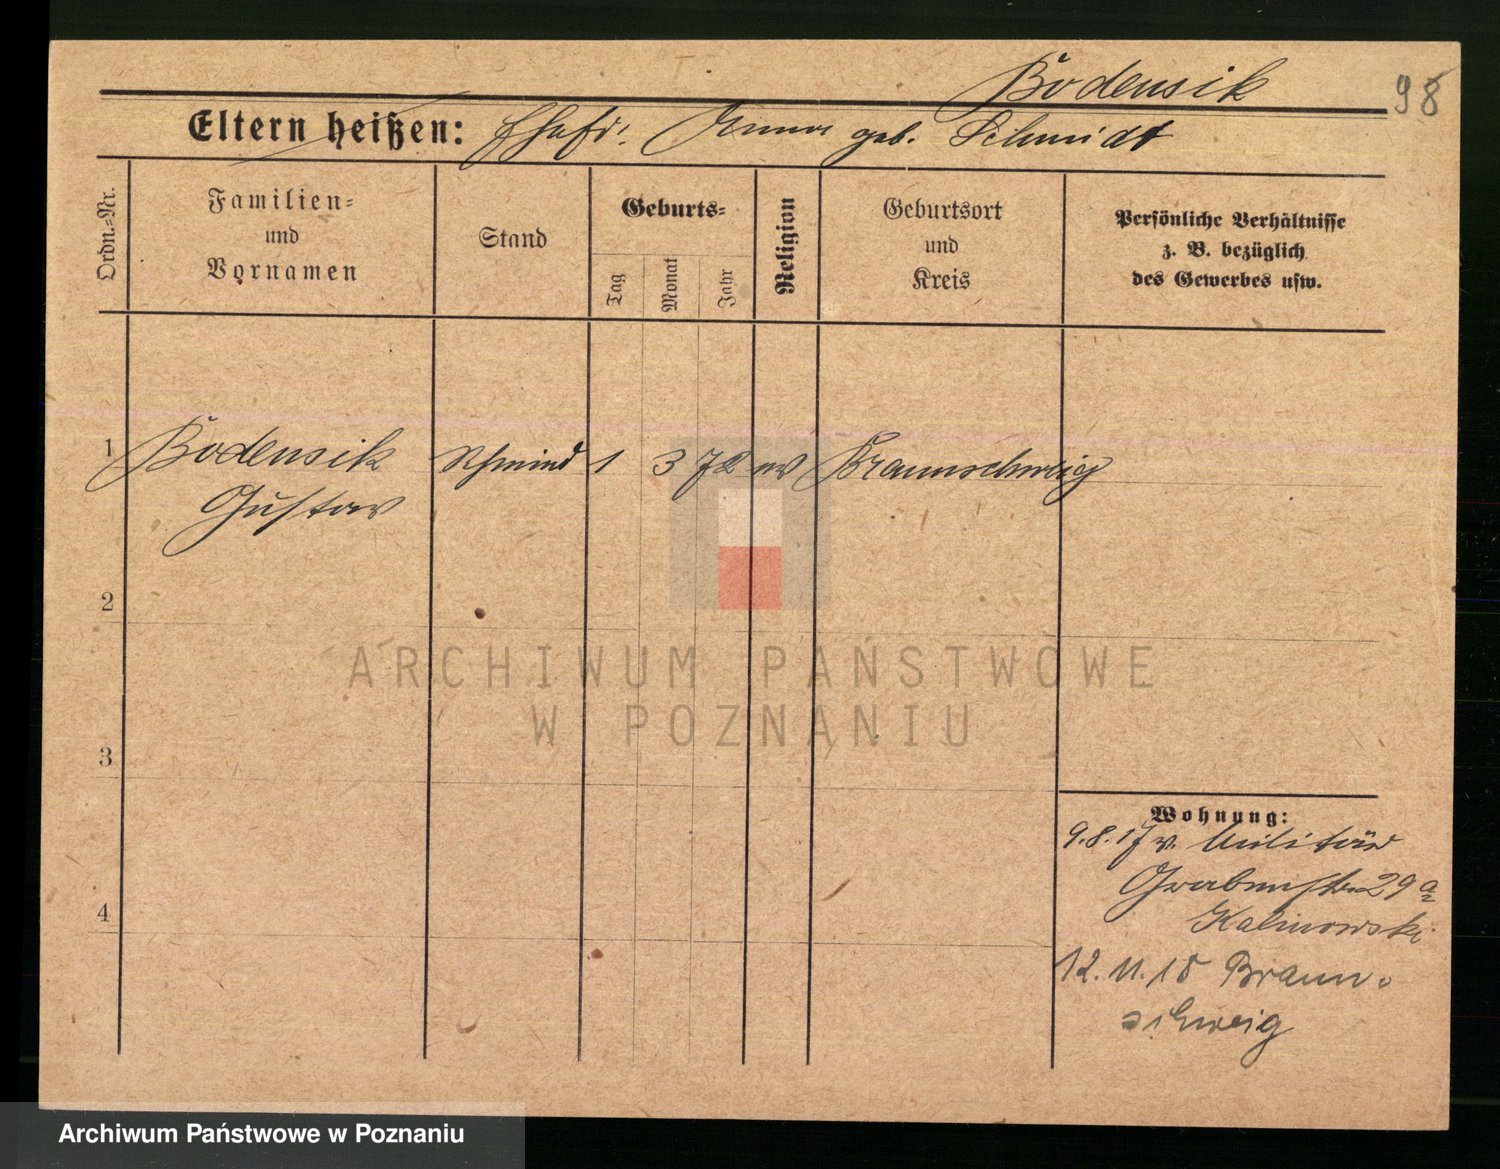 Bodensik
98
Eltern heißen: Ehefr. Emma geb. Schmidt
Ordn.-Nr.
Familien-
und
Vornamen
Stand
Geburts-
Tag
Monat
Jahr
Religion
Geburtsort
und
Kreis
Persönliche Verhältnisse
z. B. bezüglich
des Gewerbes usw.
1 Bodensik Schmied 1 3 72 ev Braunschweig
Gustav
2
3
4
Wohnung:
9.8.17 v. Militär
Grabenstr 29a
Kalinowski
12.11.18 Braun-
schweig
ARCHIWUM PAŃSTWOWE
W POZNANIU
Archiwum Państwowe w Poznaniu